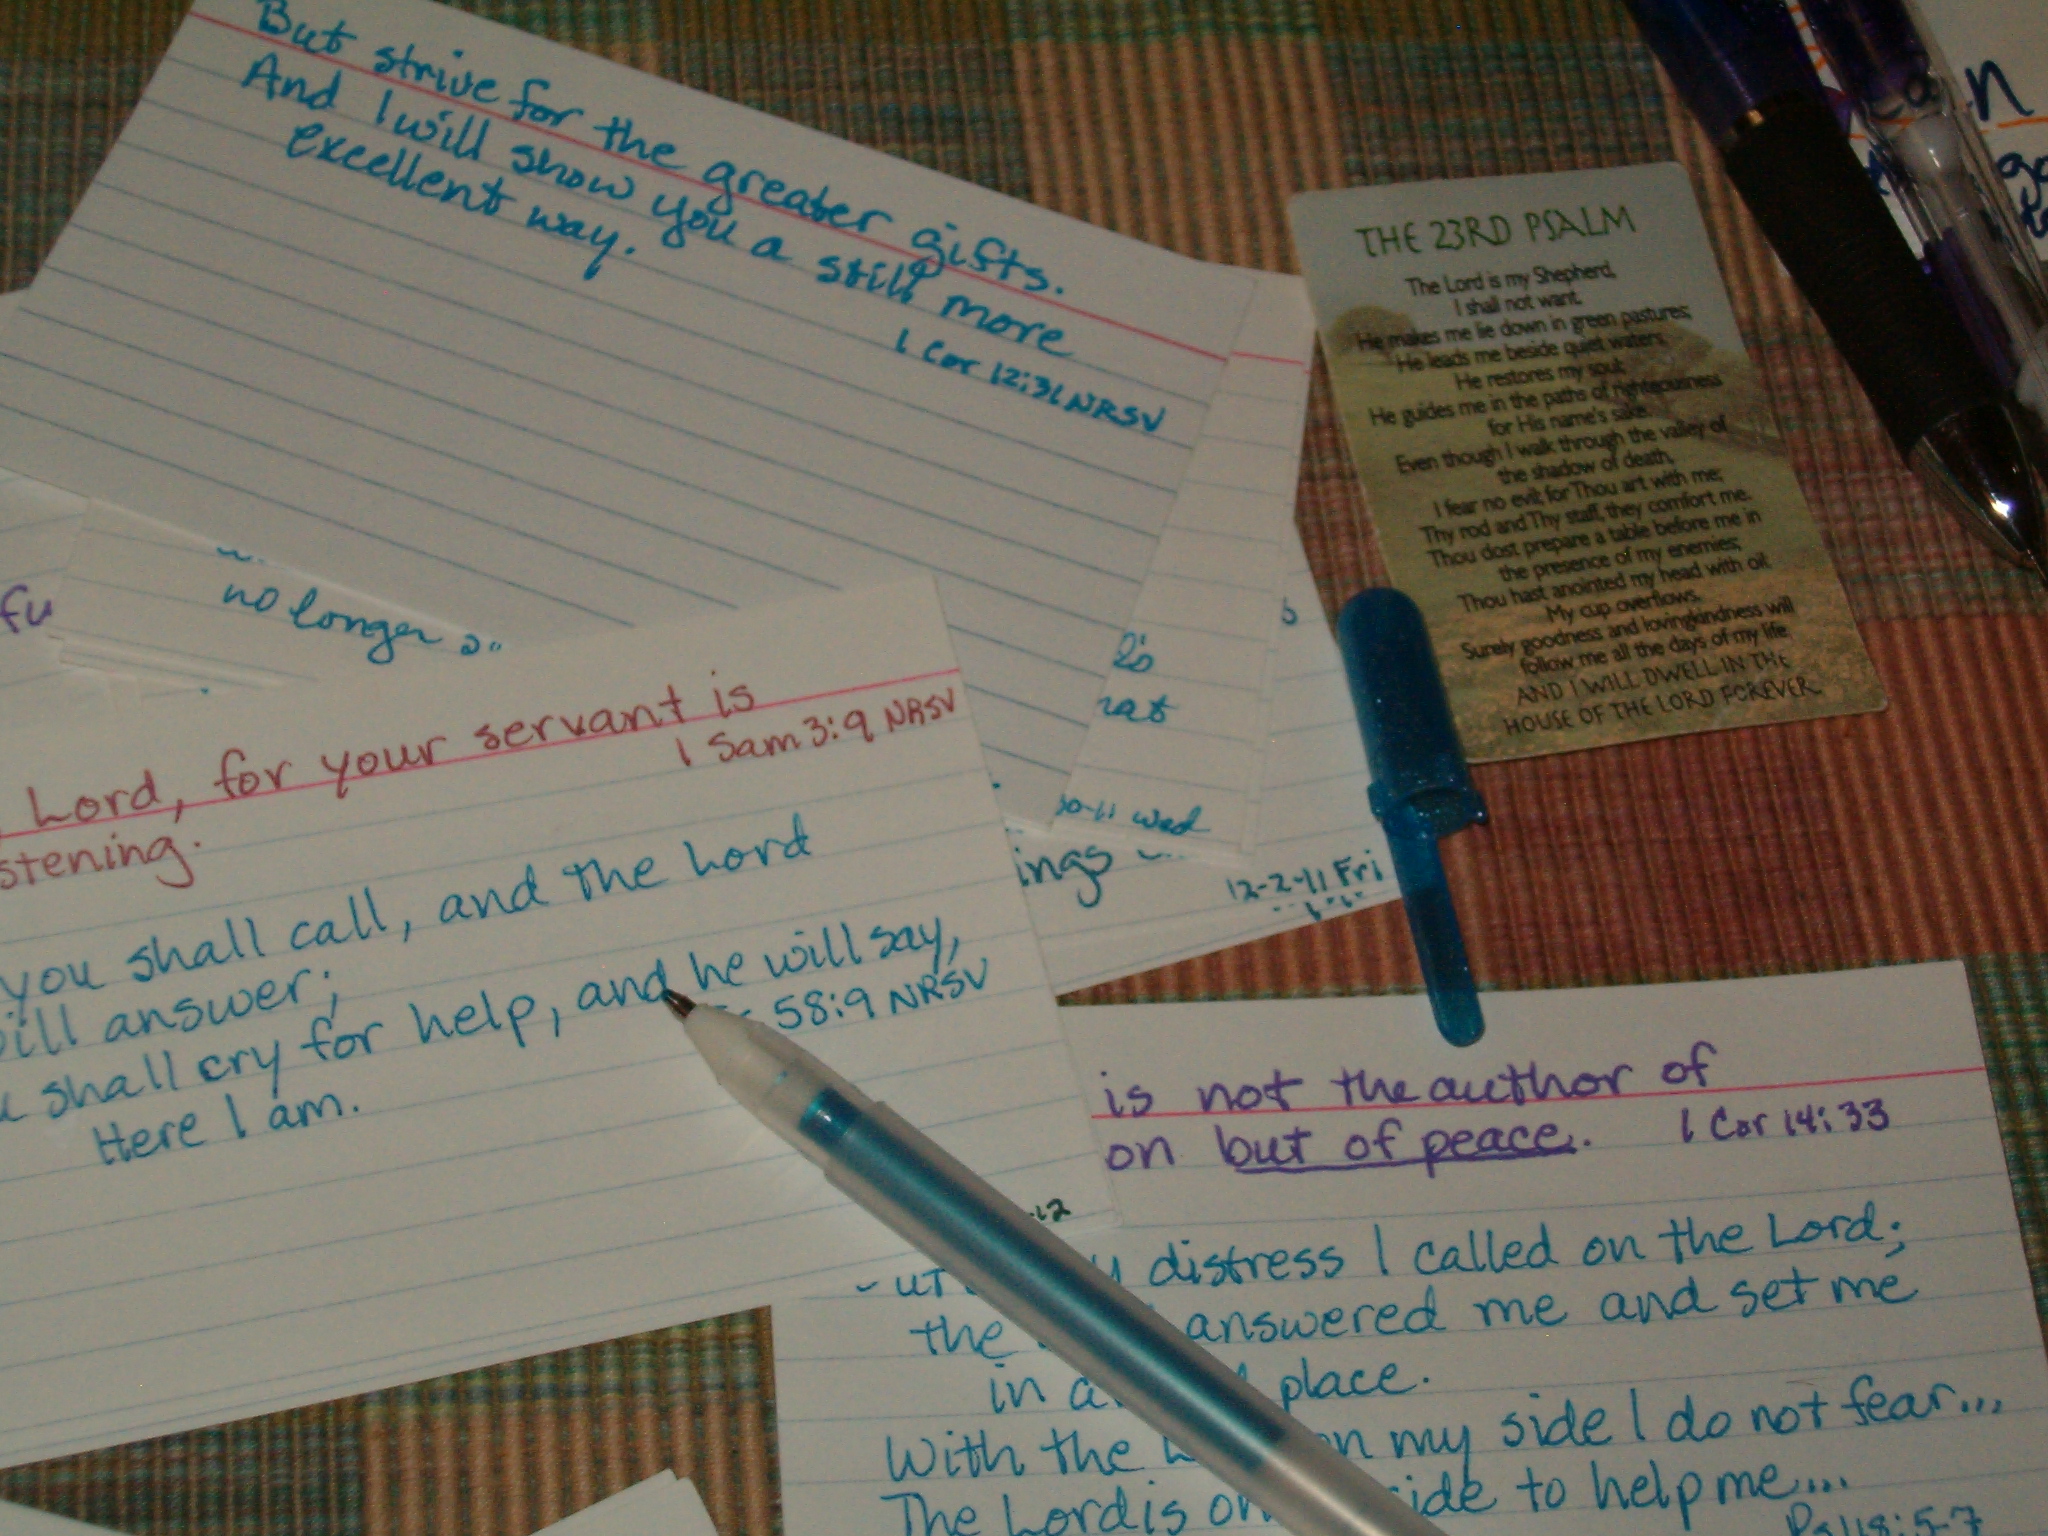 But strive for the greater gifts.
And I will show you a still more
excellent way.
1 Cor 12:31 NRSV
THE 23RD PSALM
The Lord is my Shepherd,
I shall not want.
He makes me lie down in green pastures;
He leads me beside quiet waters.
He restores my soul;
He guides me in the paths of righteousness
for His name's sake.
Even though I walk through the valley of
the shadow of death,
I fear no evil; for Thou art with me;
Thy rod and Thy staff, they comfort me.
Thou dost prepare a table before me in
the presence of my enemies;
Thou hast anointed my head with oil;
My cup overflows.
Surely goodness and lovingkindness will
follow me all the days of my life,
AND I WILL DWELL IN THE
HOUSE OF THE LORD FOREVER.
fu
no longer
Lord, for your servant is
1 Sam 3:9 NRSV
stening.
you shall call, and the Lord
will answer;
shall cry for help, and he will say,
58:9 NRSV
Here I am.
-12
hat
30-11 wed
ings
12-2-11 Fri
is not the author of
on but of peace.
1 Cor 14:33
distress I called on the Lord;
the answered me and set me
in a place.
With the on my side I do not fear...
The Lord is on side to help me....
Ps 118:5-7